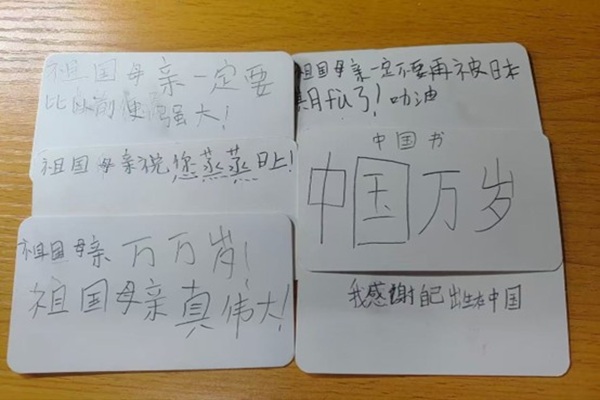 祖国母亲一定要
比以前更强大!
祖国母亲祝您蒸蒸日上!
祖国母亲万万岁!
祖国母亲真伟大!
祖国母亲一定不要再被日本
期fu了!加油
中国书
中国万岁
我感谢自己出生在中国